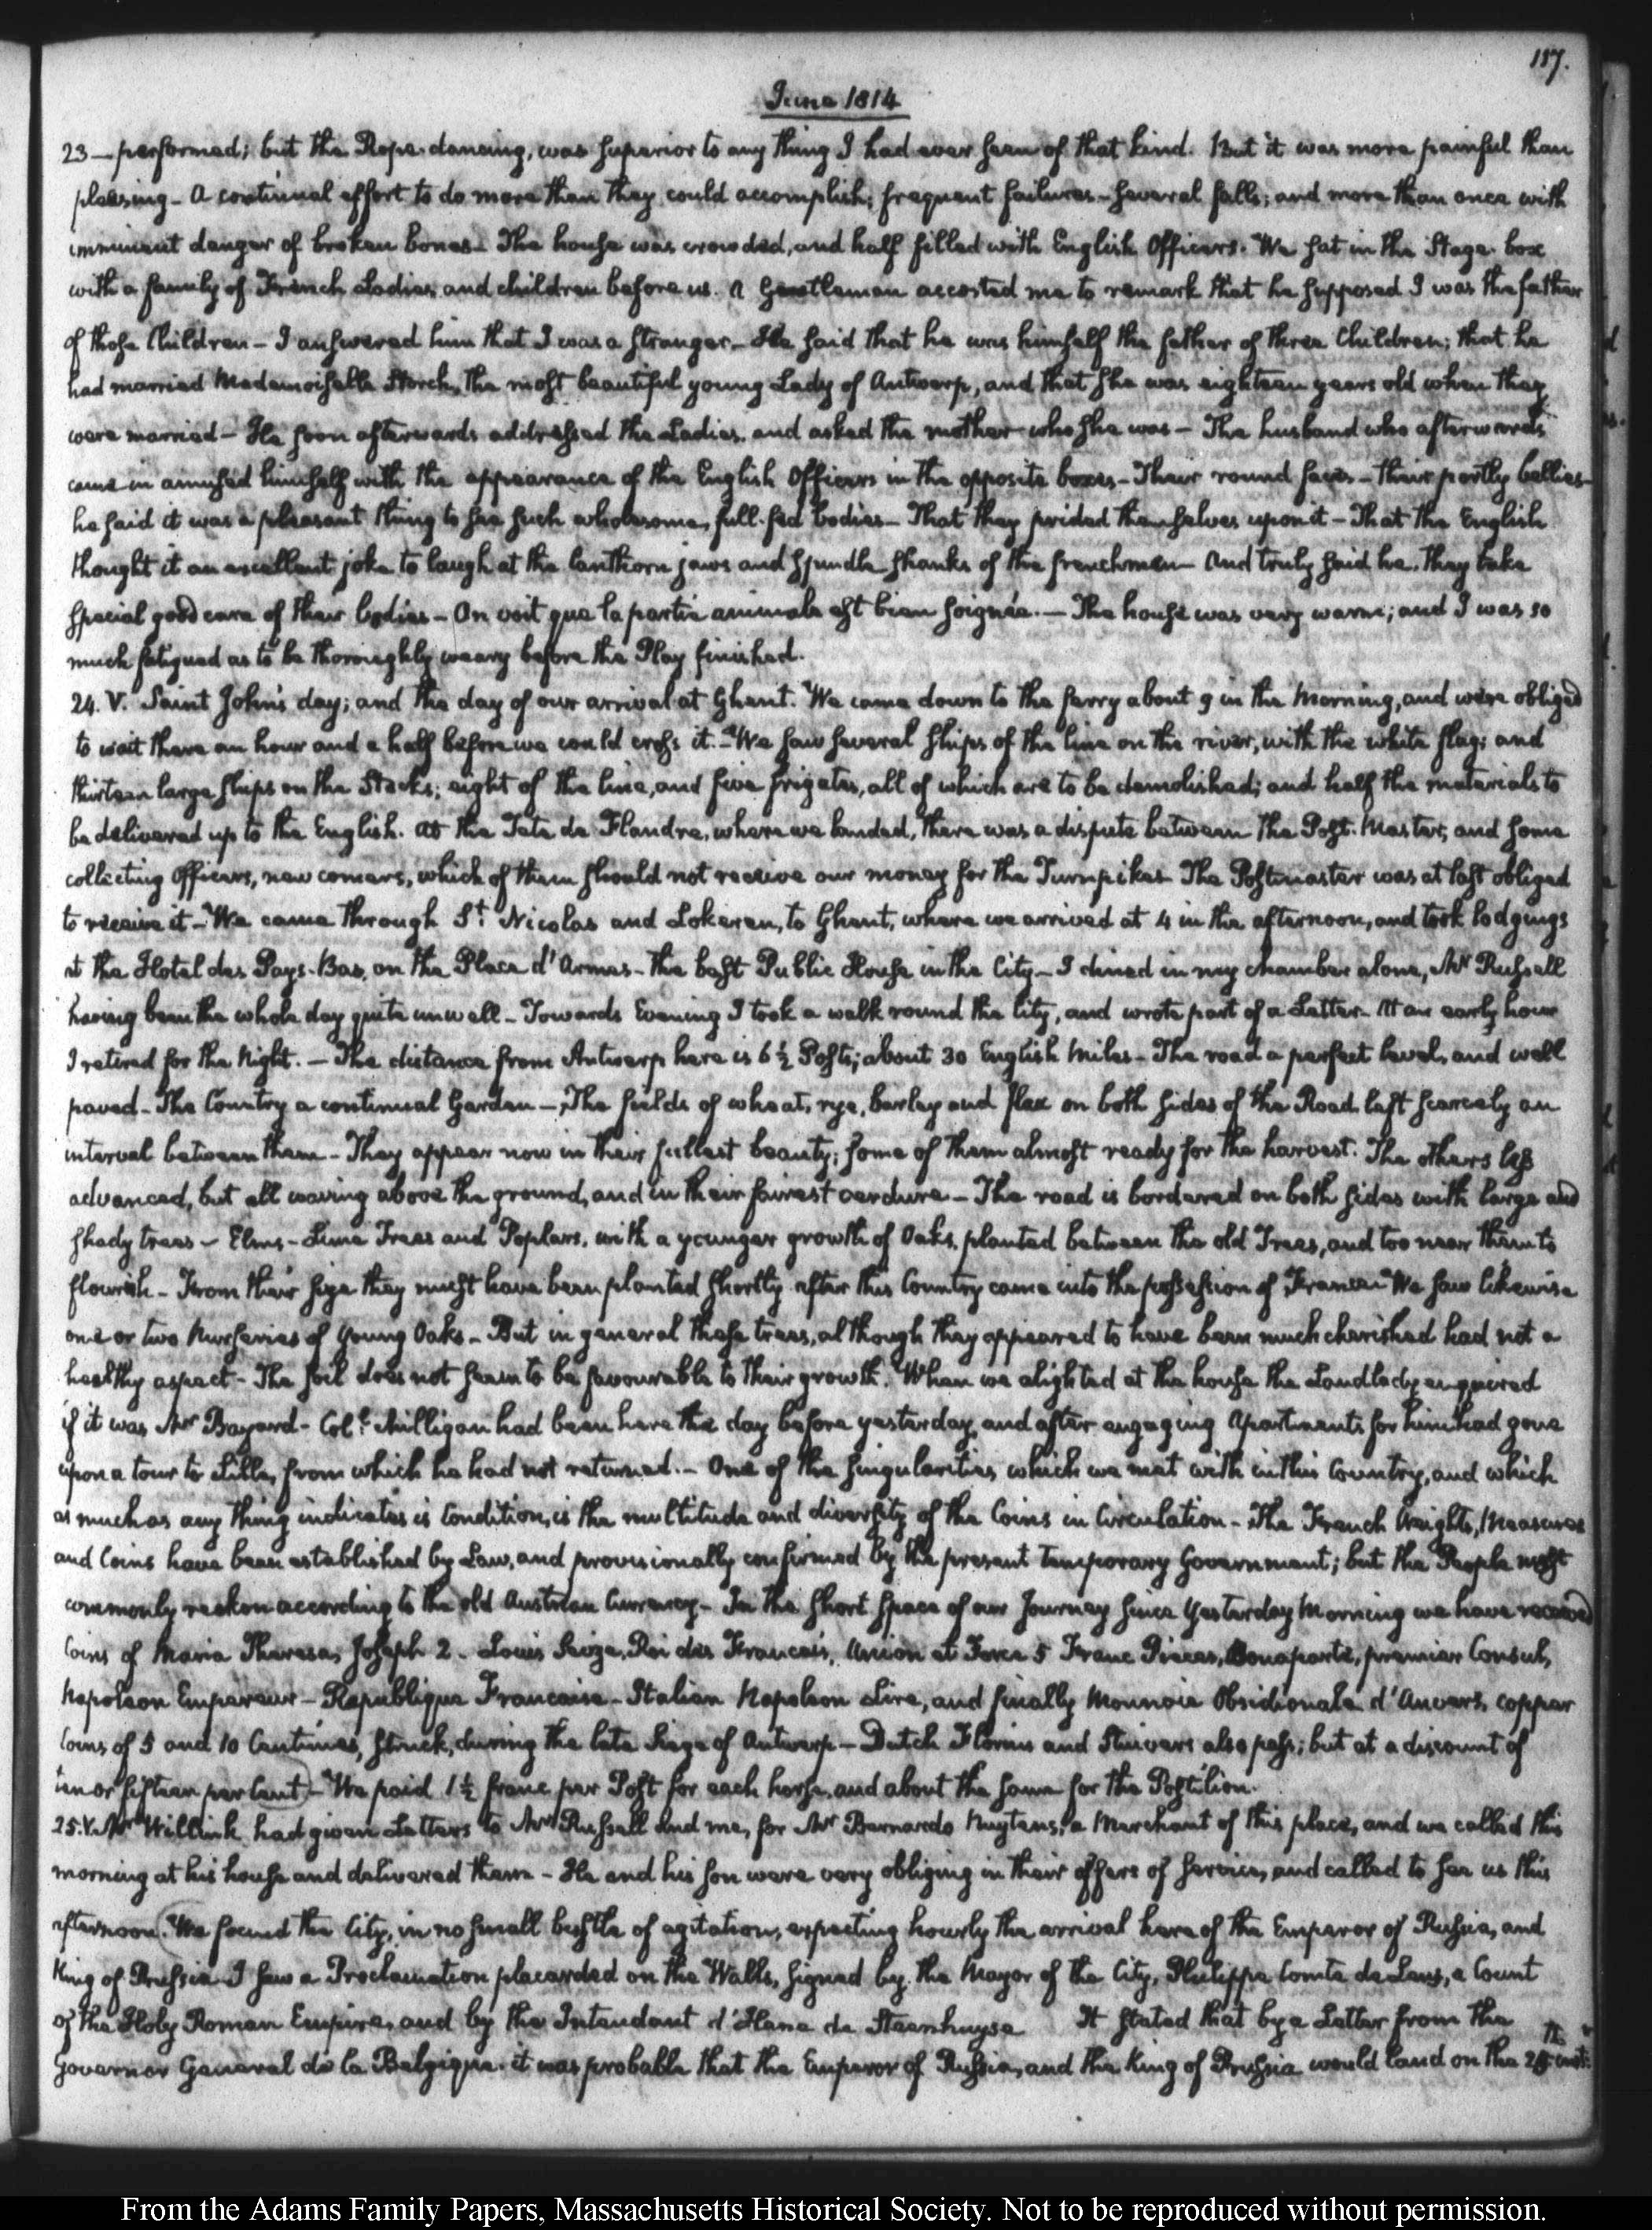 117.
June 1814
23 — performed; but the Rope-dancing, was superior to any thing I had ever seen of that kind. But it was more painful than
pleasing - A continual effort to do more than they could accomplish; frequent failures - several falls; and more than once with
imminent danger of broken bones - The house was crowded, and half filled with English Officers. We sat in the Stage-box
with a family of French Ladies and children before us. A Gentleman accosted me to remark that he supposed I was the father
of those Children - I answered him that I was a stranger - He said that he was himself the father of three Children; that he
had married Mademoiselle Storch, the most beautiful young Lady of Antwerp, and that she was eighteen years old when they
were married - He soon afterwards addressed the Ladies, and asked the mother who she was - The husband who afterwards
came in amused himself with the appearance of the English Officers in the opposite boxes - Their round faces - their portly bellies -
he said it was a pleasant thing to see such wholesome, full-fed bodies - That they prided themselves upon it - That the English
thought it an excellent joke to laugh at the lanthorn jaws and spindle shanks of the frenchmen - And truly said he, they take
special good care of their bodies - On voit que la partie animale est bien soignée. — The house was very warm; and I was so
much fatigued as to be thoroughly weary before the Play finished.
24. V. Saint John's day; and the day of our arrival at Ghent. We came down to the ferry about 9 in the Morning, and were obliged
to wait there an hour and a half before we could cross it. - We saw several ships of the line on the river, with the white flag; and
thirteen large ships on the Stocks; eight of the line, and five frigates, all of which are to be demolished; and half the materials to
be delivered up to the English. At the Tete de Flandre, where we landed, there was a dispute between the Post-Master, and some
collecting Officers, new comers, which of them should not receive our money for the Turnpikes - The Postmaster was at last obliged
to receive it - We came through St. Nicolas and Lokeren, to Ghent, where we arrived at 4 in the afternoon, and took lodgings
at the Hotel des Pays-Bas, on the Place d'Armes - the best Public House in the City - I dined in my chamber alone, Mr Russell
having been the whole day quite unwell - Towards Evening I took a walk round the City, and wrote part of a Letter - At an early hour
I retired for the Night. — The distance from Antwerp here is 6 1/2 Posts; about 30 English Miles - The road a perfect level, and well
paved - The Country a continual Garden - The fields of wheat, rye, barley and flax on both sides of the Road left scarcely an
interval between them - They appear now in their fullest beauty; some of them almost ready for the harvest. The others less
advanced, but all waving above the ground, and in their fairest verdure - The road is bordered on both sides with large and
shady trees - Elms - Lime Trees and Poplars, with a younger growth of Oaks, planted between the old Trees, and too near them to
flourish - From their size they must have been planted shortly after this Country came into the possession of France - We saw likewise
one or two Nurseries of young Oaks - But in general these trees, although they appeared to have been much cherished had not a
healthy aspect - The soil does not seem to be favourable to their growth. When we alighted at the house the Landlady enquired
if it was Mr Bayard - Coll. Milligan had been here the day before yesterday, and after engaging Apartments for him had gone
upon a tour to Lille, from which he had not returned. - One of the singularities which we met with in this Country, and which
as much as any thing indicates is Condition, is the multitude and diversity of the Coins in Circulation - The French Weights, Measures
and Coins have been established by Law, and provisionally confirmed by the present temporary Government; but the People most
commonly reckon according to the old Austrian Currency - In the short space of our Journey since Yesterday Morning we have received
Coins of Maria Theresa, Joseph 2 - Louis Seize, Roi des Francais, Union et Force 5 Franc Pieces, Bonaparte, premier Consul,
Napoleon Empereur - Republique Francaise - Italian Napoleon Lire, and finally Monnoie Obsidionale d'Anvers, copper
Coins of 5 and 10 Centimes, struck, during the late Siege of Antwerp - Dutch Florins and Stuivers also pass; but at a discount of
ten or fifteen per Cent - We paid 1 1/2 franc per Post for each horse, and about the same for the Postilion.
25. V. Mr Willink had given Letters to Mr Russell and me, for Mr Bernardo Nuytens, a Merchant of this place, and we called this
morning at his house and delivered them - He and his Son were very obliging in their offers of service, and called to see us this
afternoon. We found the City, in no small bustle of agitation, expecting hourly the arrival here of the Emperor of Russia, and
King of Prussia - I saw a Proclamation placarded on the Walls, signed by the Mayor of the City, Philippe Comte de Lens, a Count
of the Holy Roman Empire, and by the Intendant d'Hane de Steenhuyse It stated that by a Letter from the
Governor General de la Belgique it was probable that the Emperor of Russia, and the King of Prussia would land on the inst:
From the Adams Family Papers, Massachusetts Historical Society. Not to be reproduced without permission.